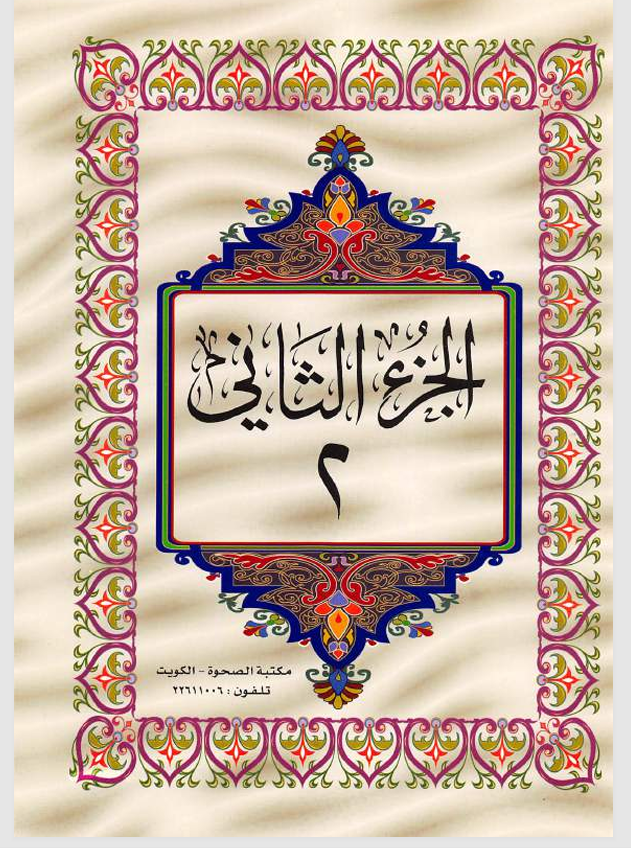 الجزء الثاني
٢
مكتبة الصحوة - الكويت
تلفون : ٢٢٦١١٠٠٦